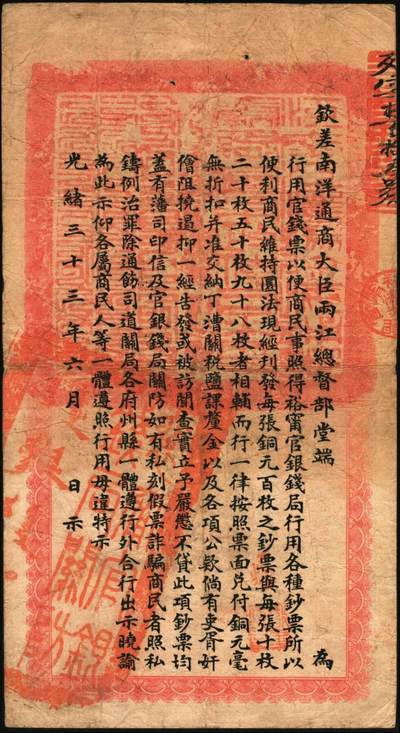 欽差南洋通商大臣兩江總督部堂端　為
行用官錢票以便商民事照得裕甯官銀錢局行用各種鈔票所以
便利商民維持圜法現經刊發每張銅元百枚之鈔票與每張十枚
二十枚五十枚九十八枚者相輔而行一律按照票面兌付銅元毫
無折扣并准交納丁漕關稅鹽課釐金以及各項公欵倘有吏胥奸
儈阻撓過抑一經告發或被訪聞查實立予嚴懲不貸此項鈔票均
蓋有藩司印信及官銀錢局關防如有私刻假票詐騙商民者照私
鑄例治罪除通飭司道關局各府州縣一體遵行外合行出示曉諭
為此示仰各屬商民人等一體遵照行用毋違特示
光緒三十三年六月　日示